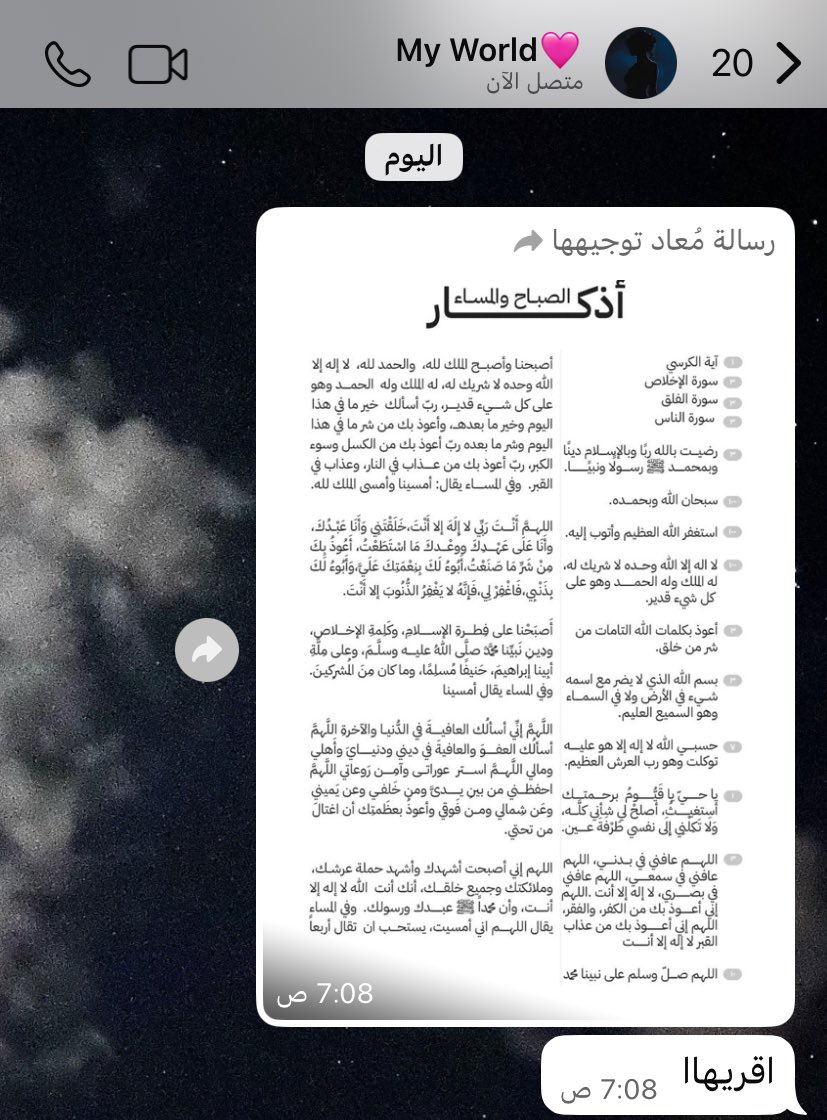 20
My World🩷
متصل الآن
اليوم
رسالة مُعاد توجيهها
أذكار الصباح والمساء
١ آية الكرسي
٣ سورة الإخلاص
٣ سورة الفلق
٣ سورة الناس
٣ رضيت بالله ربًا وبالإسلام دينًا
وبمحمد ﷺ رسولًا ونبيًا.
١٠٠ سبحان الله وبحمده.
١٠٠ استغفر الله العظيم وأتوب إليه.
١٠٠ لا اله إلا الله وحده لا شريك له،
له الملك وله الحمد وهو على
كل شيء قدير.
٣ أعوذ بكلمات الله التامات من
شر من خلق.
٣ بسم الله الذي لا يضر مع اسمه
شيء في الأرض ولا في السماء
وهو السميع العليم.
٧ حسبي الله لا إله إلا هو عليه
توكلت وهو رب العرش العظيم.
١ يا حيّ يا قَيُّومُ برحمتك
أستغيثُ، أصلحْ لي شأني كلَّه،
وَلا تَكلْني إلى نفسي طَرْفَةَ عين.
٣ اللهم عافني في بدني، اللهم
عافني في سمعي، اللهم عافني
في بصري، لا إله إلا أنت .اللهم
إني أعوذ بك من الكفر، والفقر،
اللهم إني أعوذ بك من عذاب
القبر لا إله إلا أنت
١٠ اللهم صلّ وسلم على نبينا محمد
أصبحنا وأصبح الملك لله، والحمد لله، لا إله إلا
الله وحده لا شريك له، له الملك وله الحمد وهو
على كل شيء قدير، ربّ أسألك خير ما في هذا
اليوم وخير ما بعده، وأعوذ بك من شر ما في هذا
اليوم وشر ما بعده ربّ أعوذ بك من الكسل وسوء
الكبر، ربّ أعوذ بك من عذاب في النار، وعذاب في
القبر. وفي المساء يقال: أمسينا وأمسى الملك لله.
اللهمَّ أَنْتَ رَبِّي لا إِلَهَ إلا أَنْتَ،خَلَقْتَنِي وَأَنَا عَبْدُكَ،
وَأَنَا عَلَى عَهْدِكَ وَوعْدكَ مَا اسْتَطَعْتُ، أَعُوذُ بِكَ
مِنْ شَرِّ مَا صَنَعْتُ،أَبُوءُ لَكَ بِنِعْمَتِكَ عَلَيَّ،وَأَبُوءُ لَكَ
بِذَنْبِي،فَاغْفِرْ لِي،فَإِنَّهُ لا يَغْفِرُ الذُّنُوبَ إلا أَنْتَ.
أَصبَحْنا على فِطرةِ الإسلامِ، وكَلِمةِ الإخلاصِ،
ودِينِ نَبيِّنا محمد صلَّى اللهُ عليه وسلَّمَ، وعلى مِلَّةِ
أبِينا إبراهيمَ، حَنيفًا مُسلِمًا، وما كان مِنَ المُشركينَ.
وفي المساء يقال أمسينا
اللَّهمَّ إنِّي أسألُك العافيةَ في الدُّنيا والآخرةِ اللَّهمَّ
أسألُك العفوَ والعافيةَ في ديني ودنيايَ وأهلي
ومالي اللَّهمَّ استر عوراتى وآمن رَوعاتي اللَّهمَّ
احفظني من بين يدىَّ ومن خَلفي وعن يَميني
وعَن شِمالي ومن فَوقي وأعوذُ بعظَمتِك أن اغتالَ
من تحتي.
اللهم إني أصبحت أشهدك وأشهد حملة عرشك،
وملائكتك وجميع خلقك، أنك أنت الله لا إله إلا
أنت، وأن محمداً ﷺ عبدك ورسولك. وفي المساء
يقال اللهم اني أمسيت، يستحب ان تقال أربعاً
7:08 ص
اقريهاا
7:08 ص